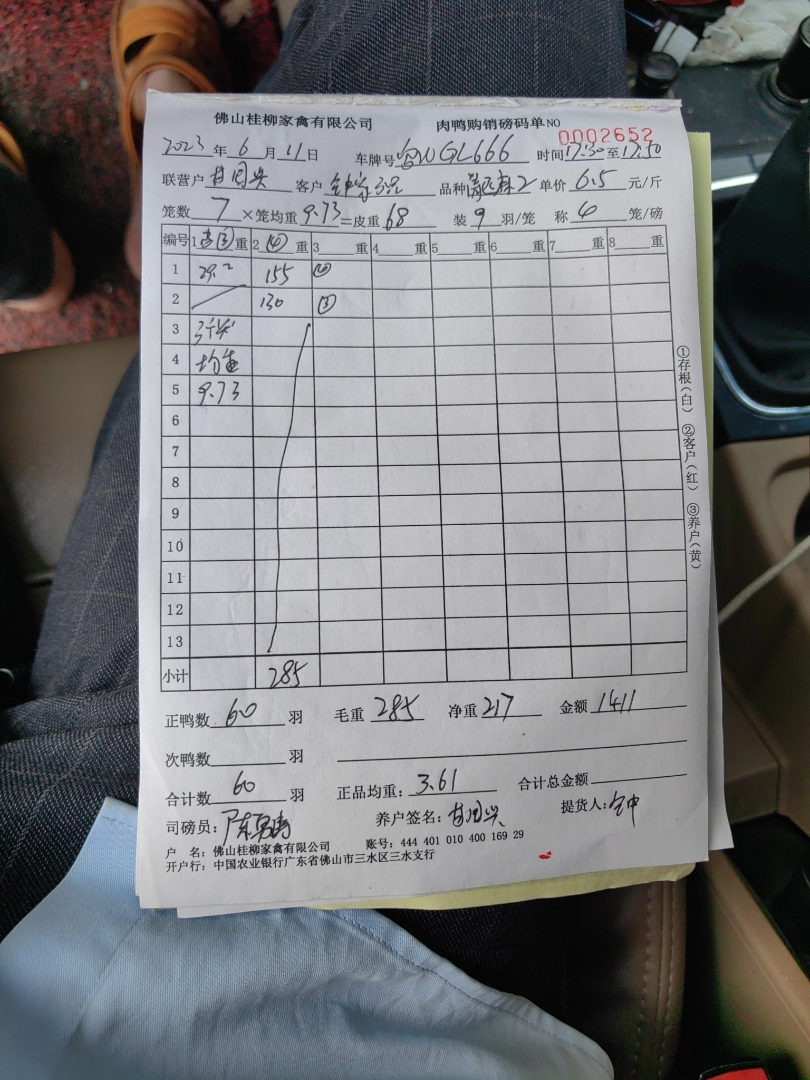 佛山桂柳家禽有限公司 肉鸭购销磅码单 NO 0002652
2023 年 6 月 11 日 车牌号 WGL666 时间 17:30 至 17:50
联营户 甘国兴 客户 品种 单价 6.5 元/斤
笼数 7 ×笼均重 9.73 =皮重 68 装 9 羽/笼 称 4 笼/磅
编号 1 重 2 ④ 重 3 重 4 重 5 重 6 重 7 重 8 重
1 29.2 155 ④
2 130 ③
3
4 均重
5 9.73
6
7
8
9
10
11
12
13
小计 285
正鸭数 60 羽 毛重 285 净重 217 金额 1411
次鸭数 羽
合计数 60 羽 正品均重: 3.61 合计总金额
司磅员: 养户签名: 甘国兴 提货人:
户 名: 佛山桂柳家禽有限公司 账号: 444 401 010 400 169 29
开户行: 中国农业银行广东省佛山市三水区三水支行
①存根(白) ②客户(红) ③养户(黄)